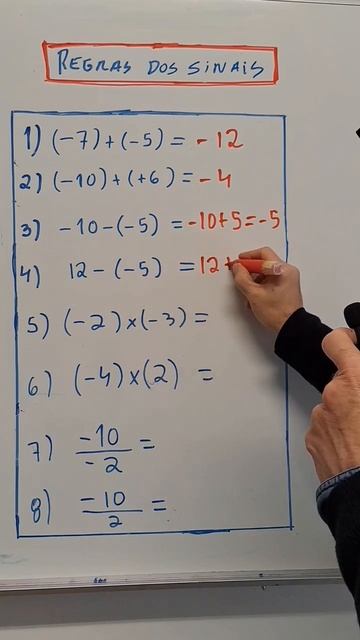 REGRAS DOS SINAIS
1) (-7)+(-5) = -12
2) (-10)+(+6) = -4
3) -10-(-5) = -10+5=-5
4) 12-(-5) = 12+
5) (-2)x(-3) =
6) (-4)x(2) =
7) -10/-2 =
8) -10/2 =